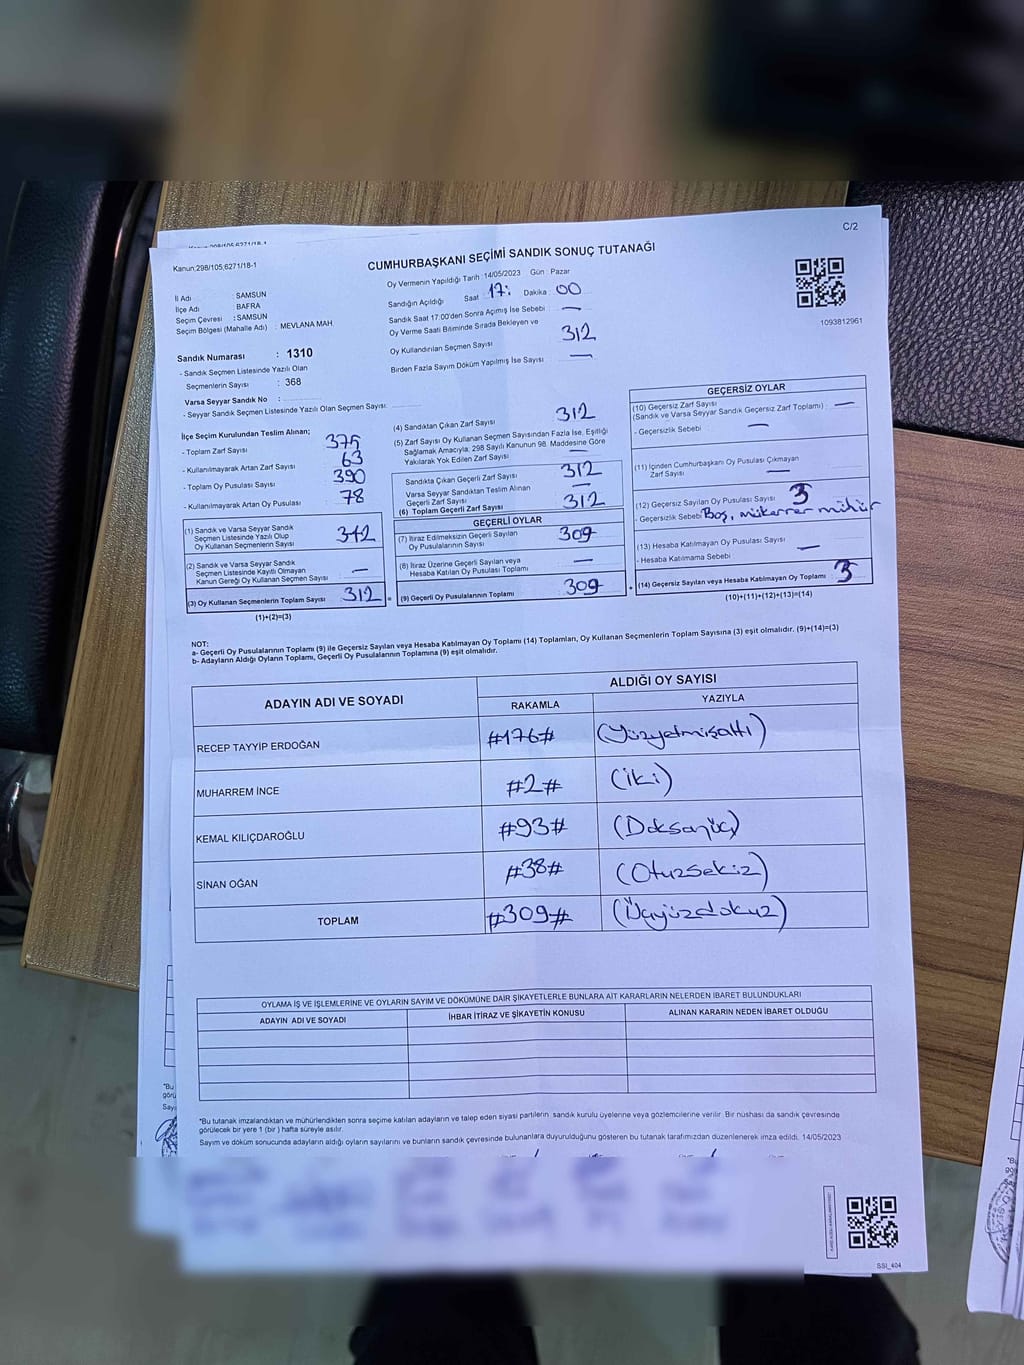 C/2
Kanun,298/105,6271/18-1
CUMHURBAŞKANI SEÇİMİ SANDIK SONUÇ TUTANAĞI
Oy Vermenin Yapıldığı Tarih : 14/05/2023 Gün : Pazar
İl Adı : SAMSUN
İlçe Adı : BAFRA
Seçim Çevresi : SAMSUN
Seçim Bölgesi (Mahalle Adı) : MEVLANA MAH
Sandık Numarası : 1310
- Sandık Seçmen Listesinde Yazılı Olan
Seçmenlerin Sayısı : 368
Varsa Seyyar Sandık No :
- Seyyar Sandık Seçmen Listesinde Yazılı Olan Seçmen Sayısı:
Sandığın Açıldığı Saat 17: Dakika 00
Sandık Saat 17.00'den Sonra Açımış İse Sebebi : —
Oy Verme Saati Bitiminde Sırada Bekleyen ve
Oy Kullandırılan Seçmen Sayısı 312
Birden Fazla Sayım Döküm Yapılmış İse Sayısı : —
1093812961
İlçe Seçim Kurulundan Teslim Alınan;
- Toplam Zarf Sayısı 375
- Kullanılmayarak Artan Zarf Sayısı 63
- Toplam Oy Pusulası Sayısı 390
- Kullanılmayarak Artan Oy Pusulası 78
(1) Sandık ve Varsa Seyyar Sandık
Seçmen Listesinde Yazılı Olup
Oy Kullanan Seçmenlerin Sayısı 312
(2) Sandık ve Varsa Seyyar Sandık
Seçmen Listesinde Kayıtlı Olmayan
Kanun Gereği Oy Kullanan Seçmen Sayısı —
(3) Oy Kullanan Seçmenlerin Toplam Sayısı 312 =
(1)+(2)=(3)
(4) Sandıktan Çıkan Zarf Sayısı 312
(5) Zarf Sayısı Oy Kullanan Seçmen Sayısından Fazla İse, Eşitliği
Sağlamak Amacıyla; 298 Sayılı Kanunun 98. Maddesine Göre
Yakılarak Yok Edilen Zarf Sayısı —
Sandıkta Çıkan Geçerli Zarf Sayısı 312
Varsa Seyyar Sandıktan Teslim Alınan
Geçerli Zarf Sayısı —
(6) Toplam Geçerli Zarf Sayısı 312
GEÇERLİ OYLAR
(7) İtiraz Edilmeksizin Geçerli Sayılan
Oy Pusulalarının Sayısı 309
(8) İtiraz Üzerine Geçerli Sayılan veya
Hesaba Katılan Oy Pusulası Toplamı —
(9) Geçerli Oy Pusulalarının Toplamı 309 +
GEÇERSİZ OYLAR
(10) Geçersiz Zarf Sayısı
(Sandık ve Varsa Seyyar Sandık Geçersiz Zarf Toplamı) : —
- Geçersizlik Sebebi : —
(11) İçinden Cumhurbaşkanı Oy Pusulası Çıkmayan
Zarf Sayısı —
(12) Geçersiz Sayılan Oy Pusulası Sayısı 3
- Geçersizlik Sebebi Boş, mükerrer mühür
(13) Hesaba Katılmayan Oy Pusulası Sayısı —
- Hesaba Katılmama Sebebi :
(14) Geçersiz Sayılan veya Hesaba Katılmayan Oy Toplamı 3
(10)+(11)+(12)+(13)=(14)
NOT:
a- Geçerli Oy Pusulalarının Toplamı (9) ile Geçersiz Sayılan veya Hesaba Katılmayan Oy Toplamı (14) Toplamları, Oy Kullanan Seçmenlerin Toplam Sayısına (3) eşit olmalıdır. (9)+(14)=(3)
b- Adayların Aldığı Oyların Toplamı, Geçerli Oy Pusulalarının Toplamına (9) eşit olmalıdır.
ADAYIN ADI VE SOYADI ALDIĞI OY SAYISI
RAKAMLA YAZIYLA
RECEP TAYYİP ERDOĞAN #176# (Yüzyetmişaltı)
MUHARREM İNCE #2# (iki)
KEMAL KILIÇDAROĞLU #93# (Doksanüç)
SİNAN OĞAN #38# (Otuzsekiz)
TOPLAM #309# (Üçyüzdokuz)
OYLAMA İŞ VE İŞLEMLERİNE VE OYLARIN SAYIM VE DÖKÜMÜNE DAİR ŞİKAYETLERLE BUNLARA AİT KARARLARIN NELERDEN İBARET BULUNDUKLARI
ADAYIN ADI VE SOYADI İHBAR İTİRAZ VE ŞİKAYETİN KONUSU ALINAN KARARIN NEDEN İBARET OLDUĞU
*Bu tutanak imzalandıktan ve mühürlendikten sonra seçime katılan adayların ve talep eden siyasi partilerin sandık kurulu üyelerine veya gözlemcilerine verilir. Bir nüshası da sandık çevresinde
görülecek bir yere 1 (bir ) hafta süreyle asılır.
Sayım ve döküm sonucunda adayların aldığı oyların sayılarını ve bunların sandık çevresinde bulunanlara duyurulduğunu gösteren bu tutanak tarafımızdan düzenlenerek imza edildi. 14/05/2023
SSI_404